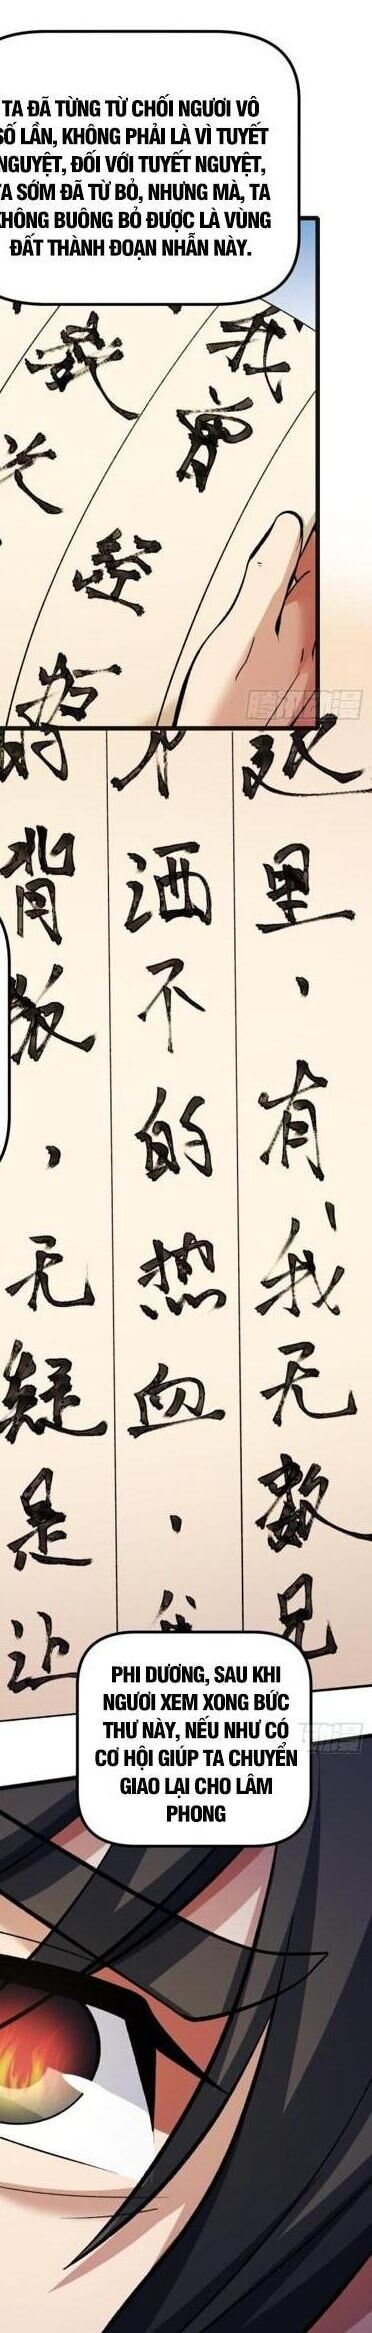 TA ĐÃ TỪNG TỪ CHỐI NGƯƠI VÔ
SỐ LẦN, KHÔNG PHẢI LÀ VÌ TUYẾT
NGUYỆT, ĐỐI VỚI TUYẾT NGUYỆT,
TA SỚM ĐÃ TỪ BỎ, NHƯNG MÀ, TA
KHÔNG BUÔNG BỎ ĐƯỢC LÀ VÙNG
ĐẤT THÀNH ĐOẠN NHẪN NÀY.
我曾
我
经
腾讯动漫
里，有我无数兄
洒不的热血，
的背叛，无疑是让
PHI DƯƠNG, SAU KHI
NGƯƠI XEM XONG BỨC
THƯ NÀY, NẾU NHƯ CÓ
CƠ HỘI GIÚP TA CHUYỂN
GIAO LẠI CHO LÂM
PHONG
动漫